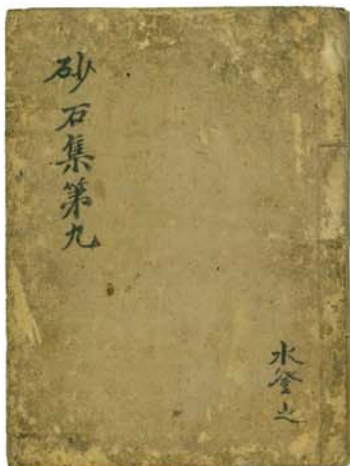 砂石集第九
水登之